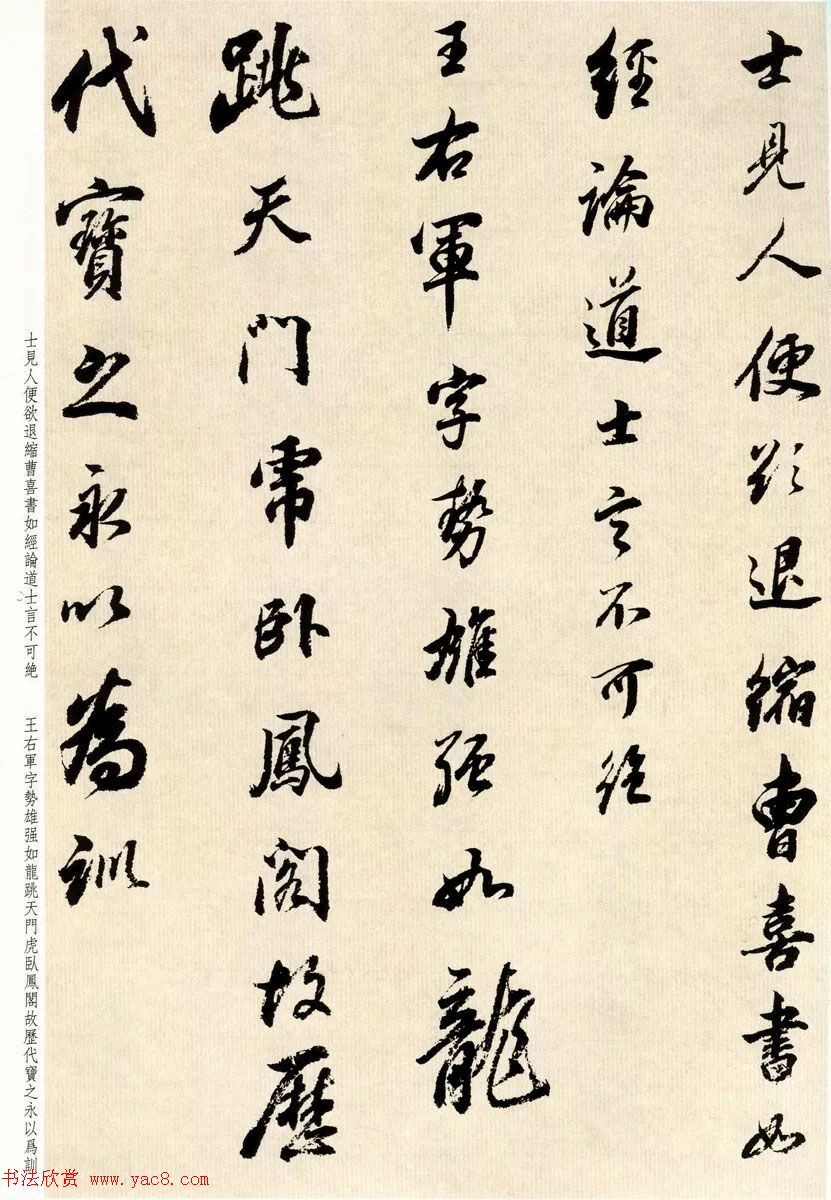 士見人便欲退縮曹喜書如
經論道士言不可絶
王右軍字勢雄强如龍
跳天門虎卧鳳閣故歷
代寶之永以為訓
士見人便欲退縮曹喜書如經論道士言不可絶
王右軍字勢雄强如龍跳天門虎卧鳳閣故歷代寶之永以爲訓
书法欣赏 www.yac8.com